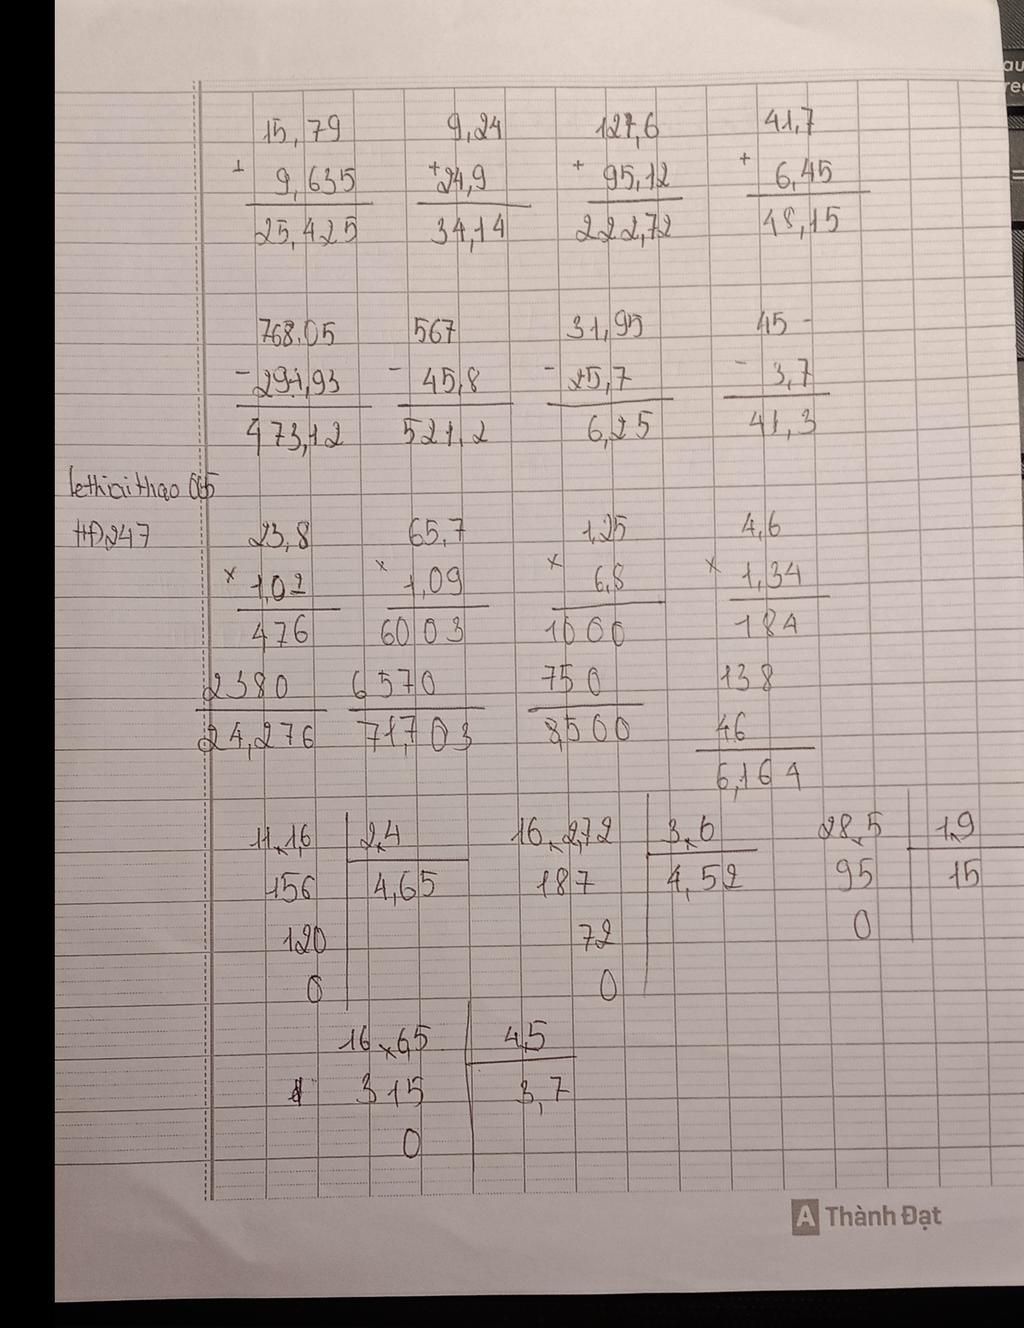 15,79 9,24 127,6 41,7
+ 9,635 + 24,9 + 95,12 + 6,45
25,425 34,14 222,72 48,15
768,05 567 31,95 45
- 294,93 - 45,8 - 25,7 - 3,7
473,12 521,2 6,25 41,3
lethiaithao
HĐ247 23,8 65,7 1,25 4,6
x 1,02 x 1,09 x 6,8 x 1,34
476 6003 1000 184
2380 6570 750 138
24,276 71,703 8,500 46
6,164
11,16 2,4 16,272 3,6 28,5 1,9
156 4,65 187 4,52 95 15
120 72 0
0 0
16,65 4,5
315 3,7
0
A Thành Đạt